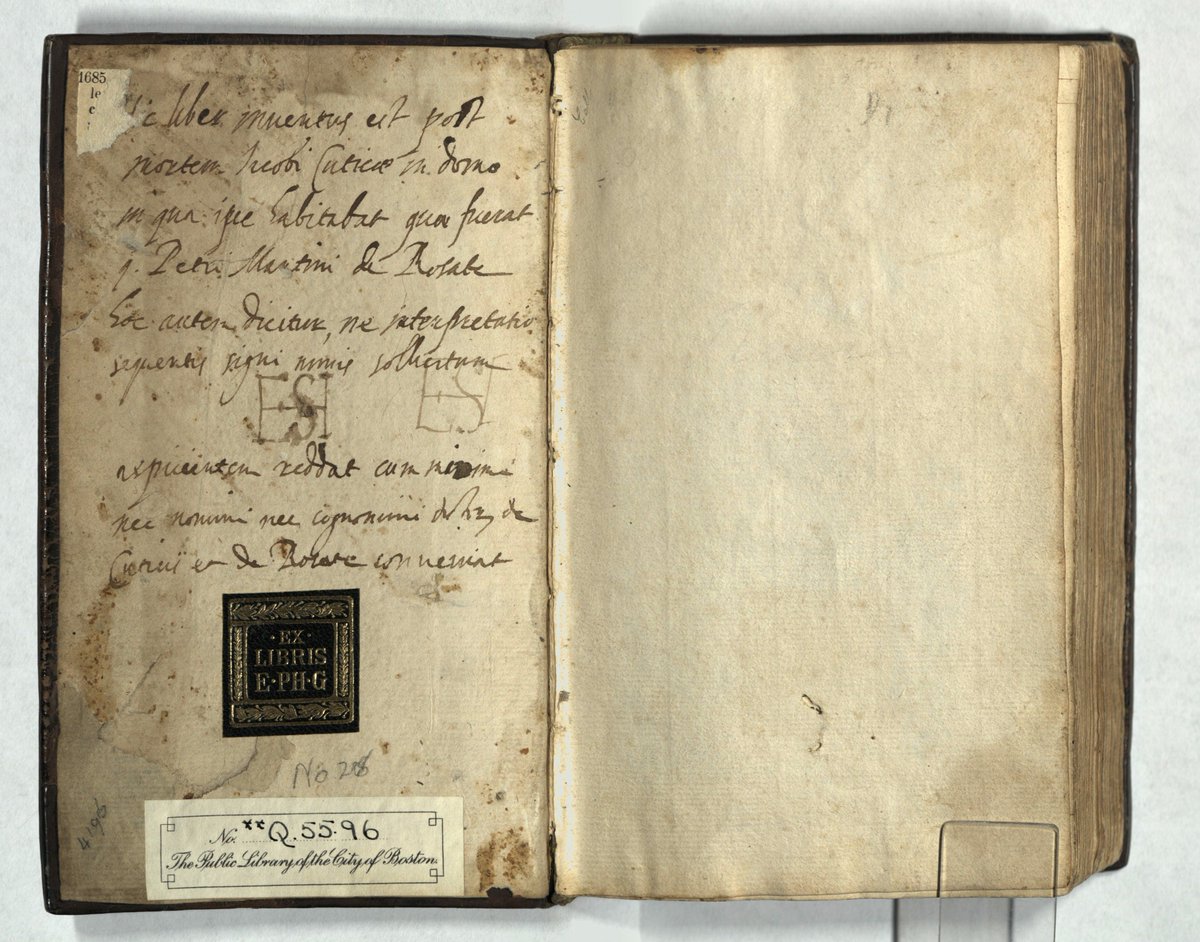 1685
le
c
liber inventus est post
mortem Jacobi Cuticæ in domo
in qua ipse habitabat quæ fuerat
q. Petri Martini de Rosate
Hoc autem dicitur, ne interpretatio
sequentis signi nimis sollicitum
ESH ESI
aspicientem reddat cum minime
nec nomini nec cognomini de
et de Rosate conveniat
·EX·
LIBRIS
E·PH·G
No 228
4196
No. **Q.55.96
The Public Library of the City of Boston.